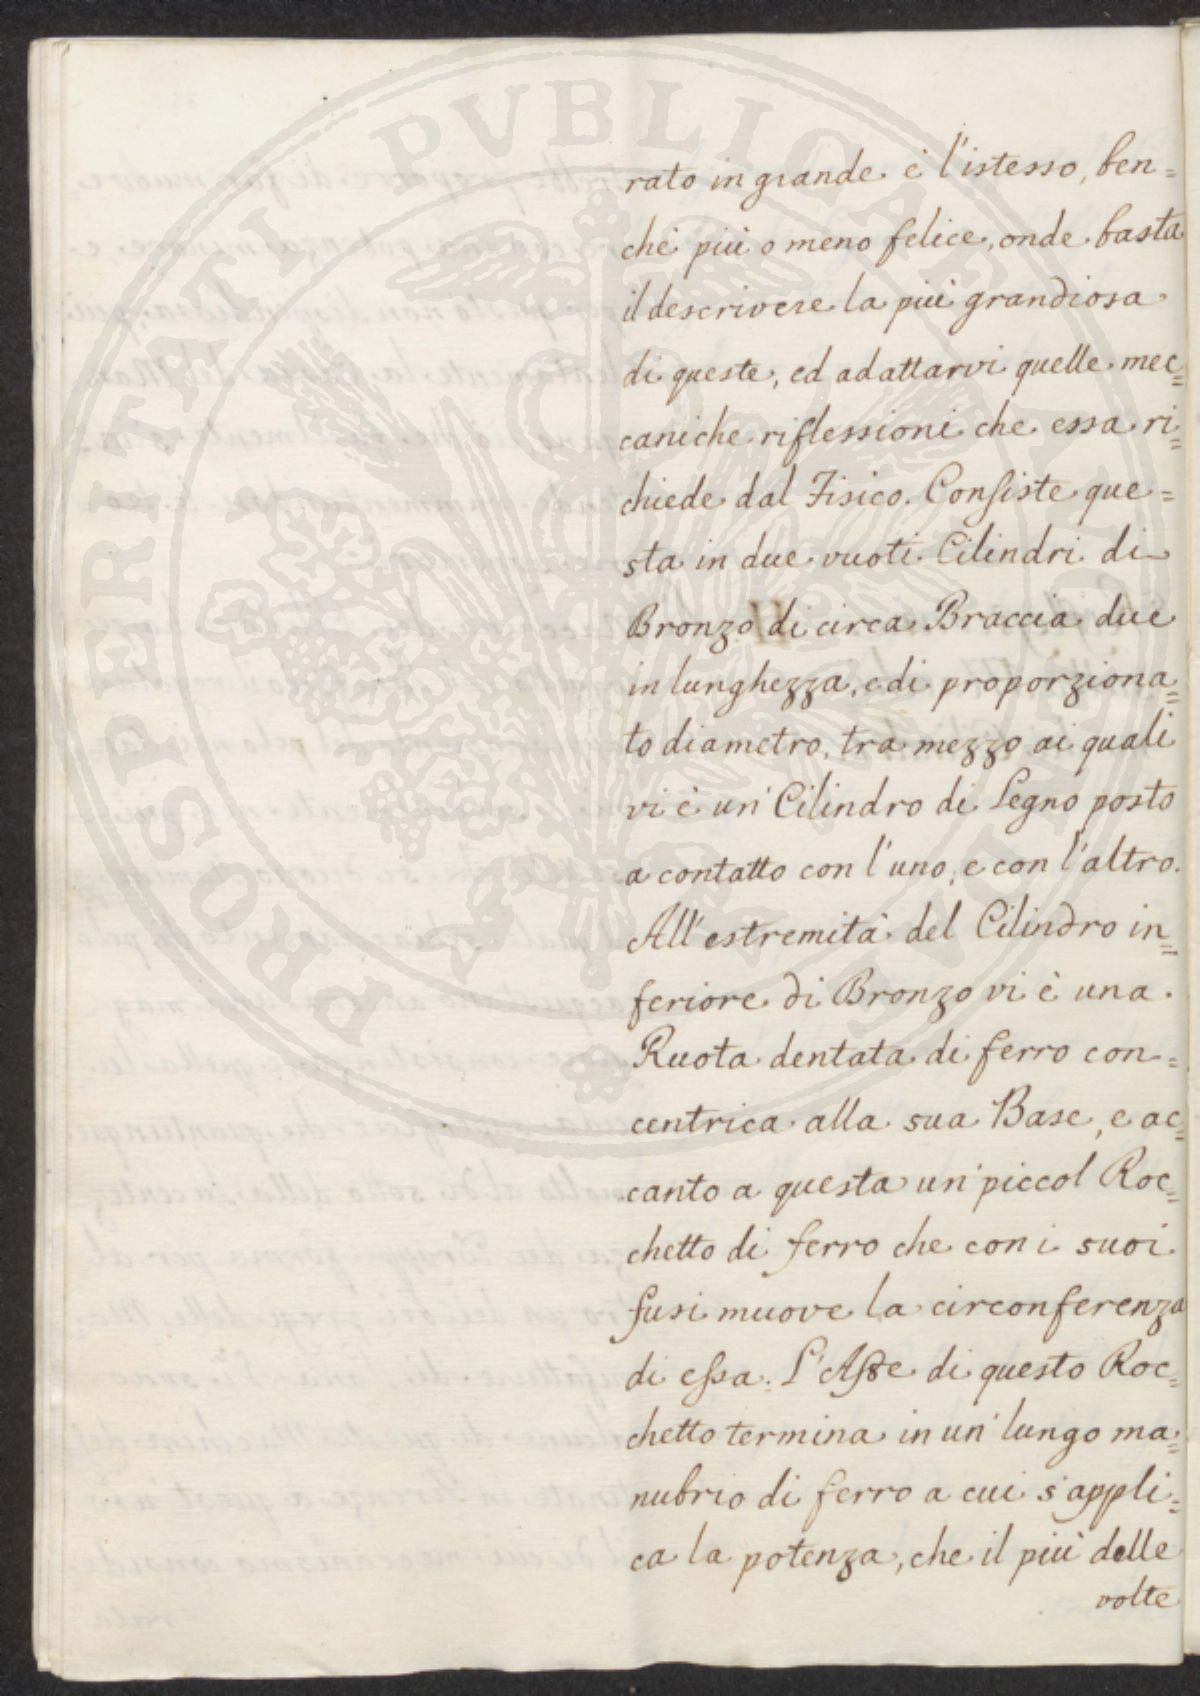 rato in grande è l'istesso, ben=
chè più o meno felice, onde basta
il descrivere la più grandiosa
di queste, ed adattarvi quelle mec=
caniche riflessioni che essa ri=
chiede dal Fisico. Consiste que=
sta in due vuoti Cilindri di
Bronzo di circa Braccia due
in lunghezza, e di proporziona=
to diametro, tra mezzo ai quali
vi è un' Cilindro di Legno posto
a contatto con l'uno, e con l'altro.
All'estremità del Cilindro in=
feriore di Bronzo vi è una
Ruota dentata di ferro con=
centrica alla sua Base, e ac=
canto a questa un' piccol Roc=
chetto di ferro che con i suoi
fusi muove la circonferenza
di essa. L'Asse di questo Roc=
chetto termina in un' lungo ma=
nubrio di ferro a cui s'appli=
ca la potenza, che il più delle
volte
PROSPERITATI PVBLICAE